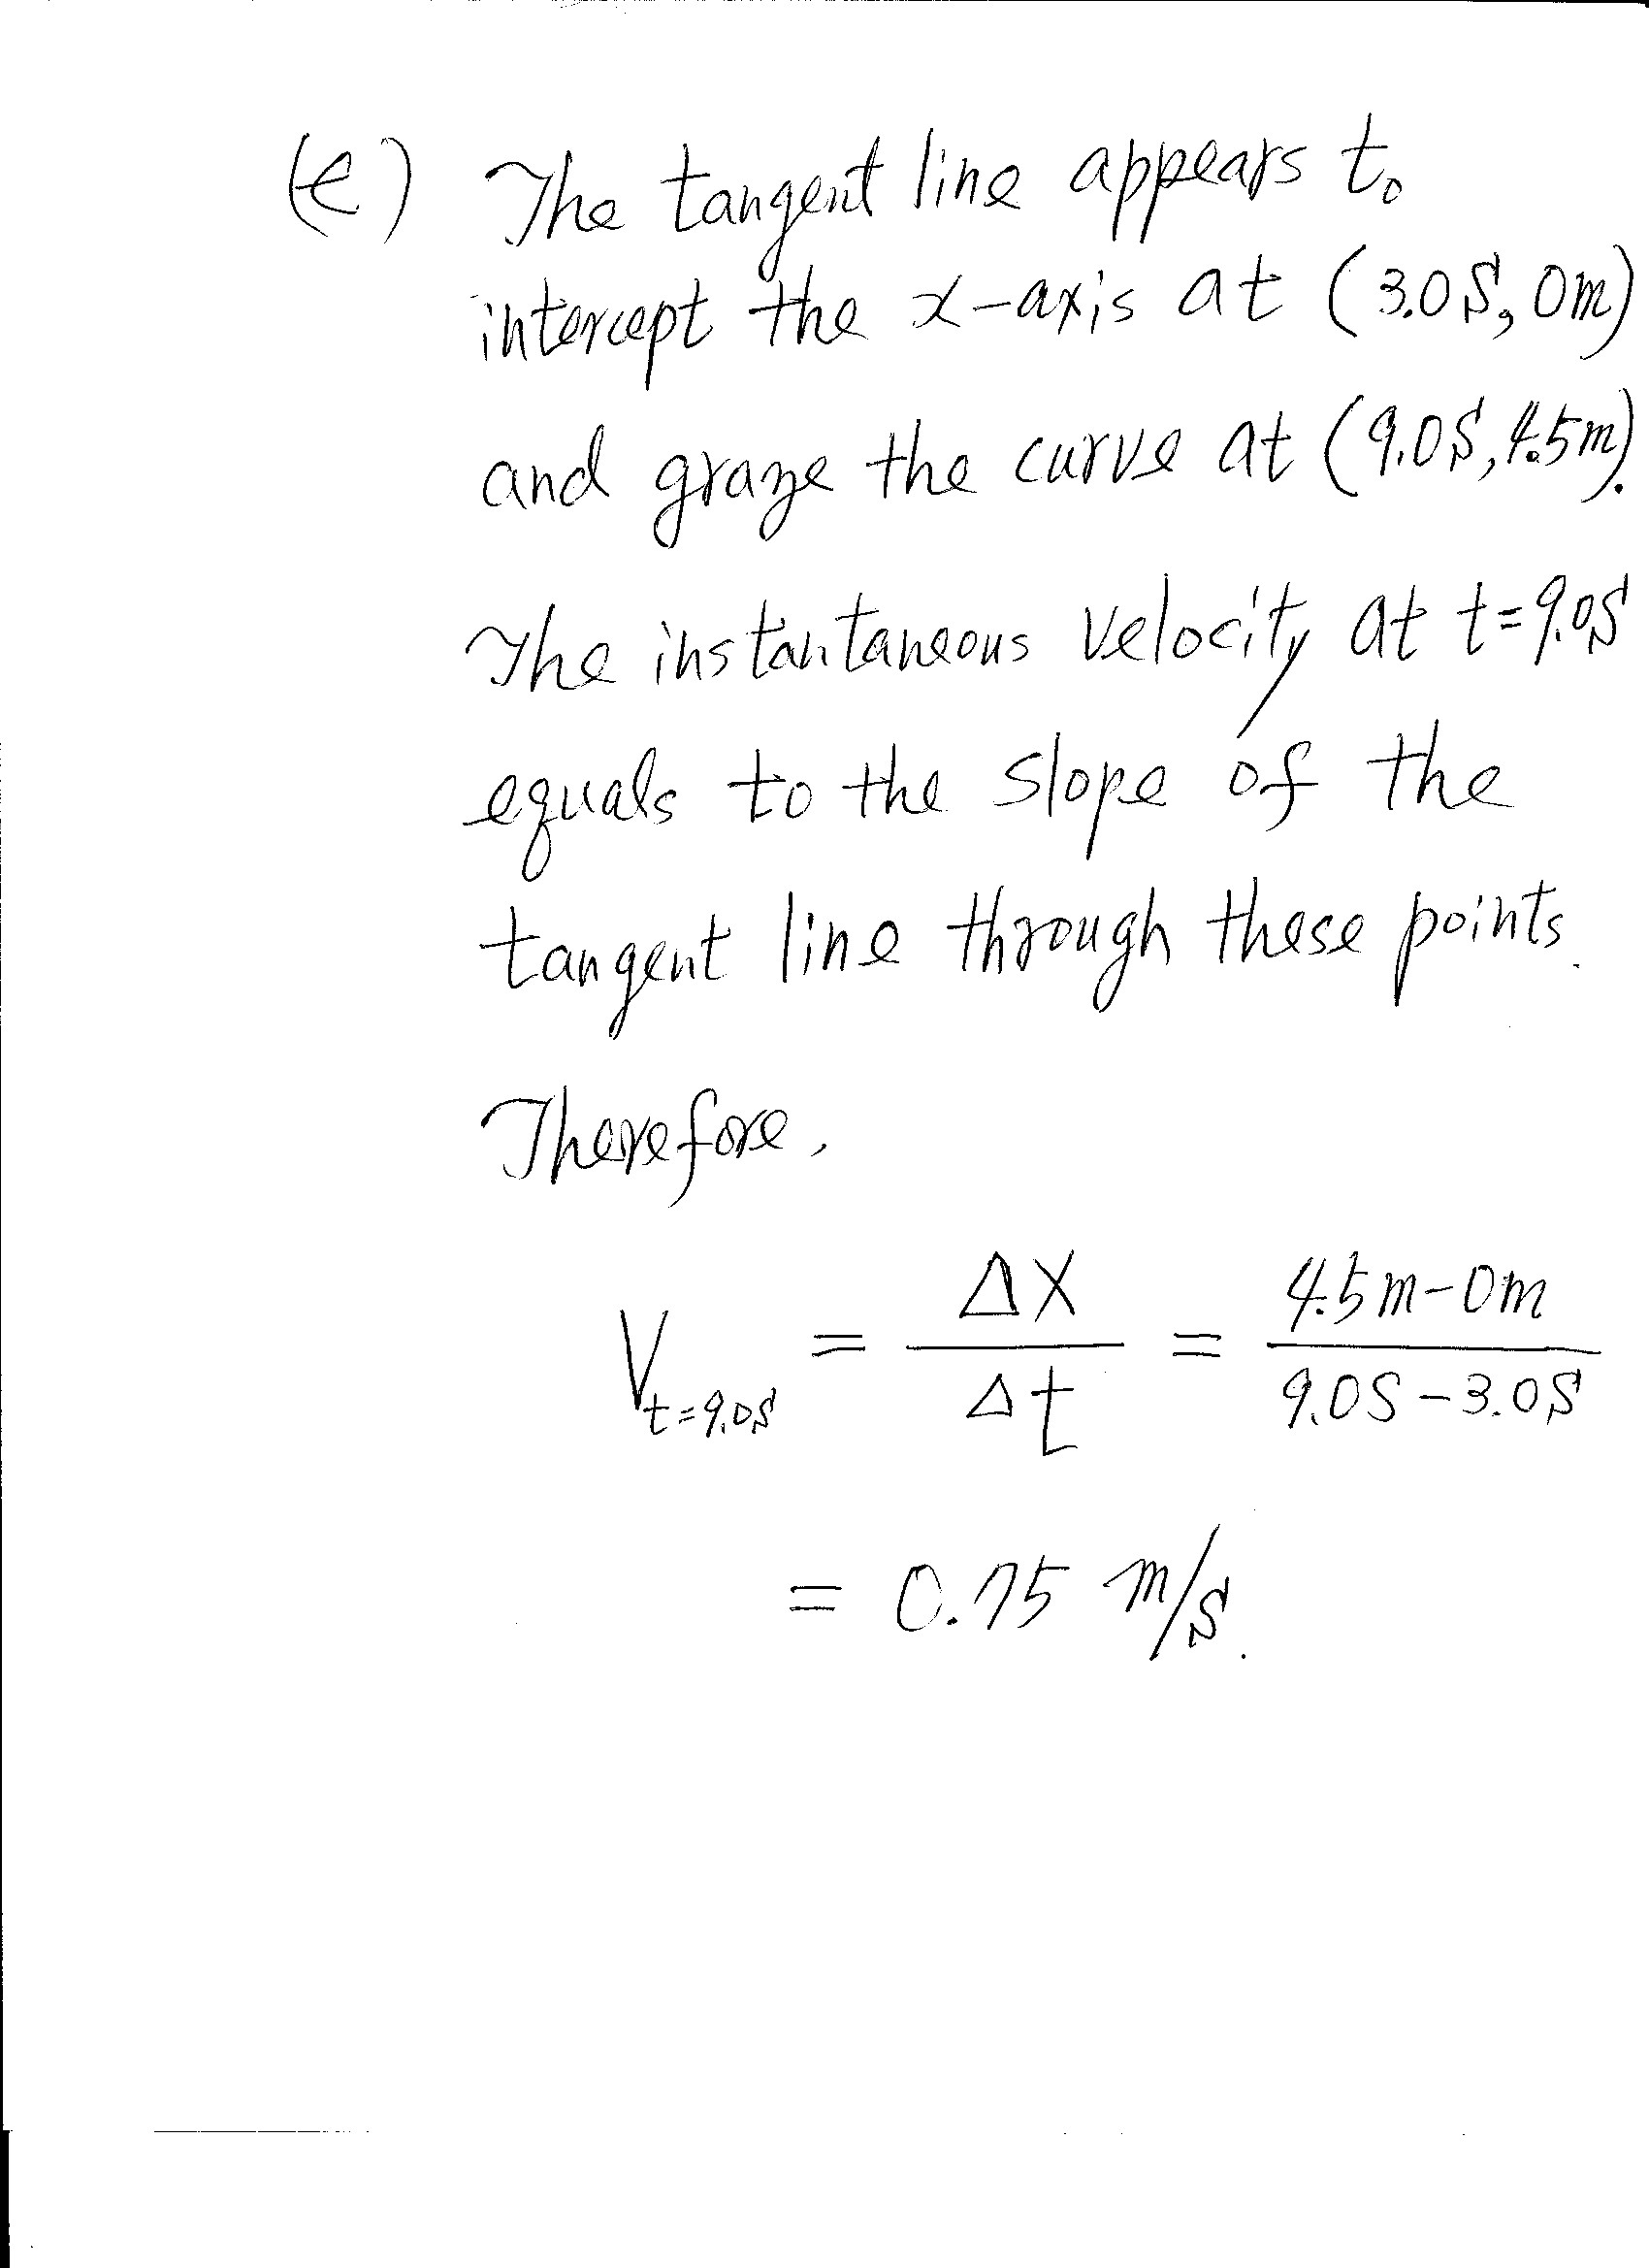 (e) The tangent line appears to
intercept the x-axis at (3.0S, 0m)
and graze the curve at (9.0S, 4.5m).
The instantaneous velocity at t=9.0S
equals to the slope of the
tangent line through these points.
Therefore,
V_{t=9.0S} = ΔX/Δt = (4.5m-0m)/(9.0S-3.0S)
= 0.75 m/S.